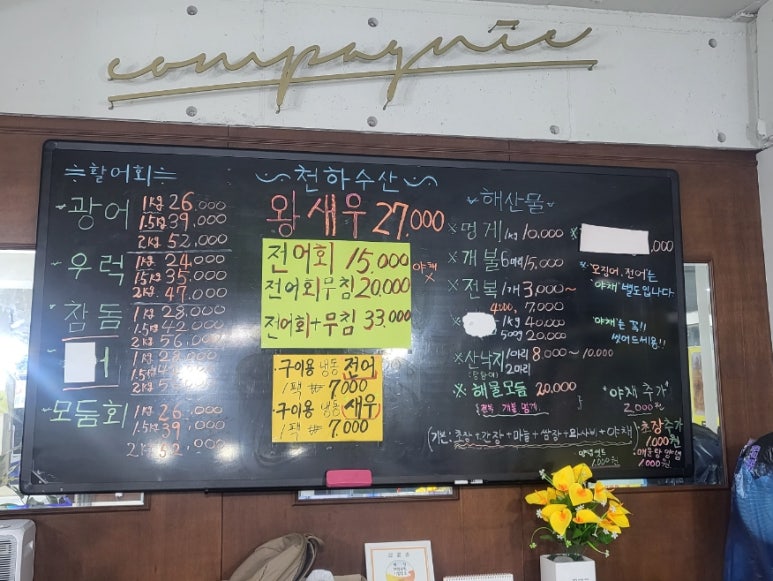 compagnie
활어회
광어 1kg 26,000
1.5kg 39,000
2kg 52,000
우럭 1kg 24,000
1.5kg 35,000
2kg 47,000
참돔 1kg 28,000
1.5kg 42,000
2kg 56,000
어 1kg 28,000
1.5kg
2kg
모둠회 1kg 26,000
1.5kg 39,000
2kg 52,000
천하수산
왕새우 27,000
전어회 15,000
야채 X
전어회무침 20,000
전어회+무침 33,000
·구이용 냉동 전어
1팩 ₩ 7,000
·구이용 냉동 새우
1팩 ₩ 7,000
해산물
※멍게 1kg 10,000
※개불 6마리 15,000
※전복 1개 3,000~
4,000, 7,000
1kg 40,000
500g 20,000
※산낙지 1마리 8,000~10,000
2마리
※해물모듬 20,000
전복 개불 멍게
(기본: 초장+간장+마늘+쌈장+와사비+야채)
※ ,000
※오징어, 전어는
"야채" 별도입니다
"야채"는 꼭!!
씻어드세용!!
"야채 추가"
2,000원
초장추가
1,000원
1,000원
매운탕 양념
1,000원